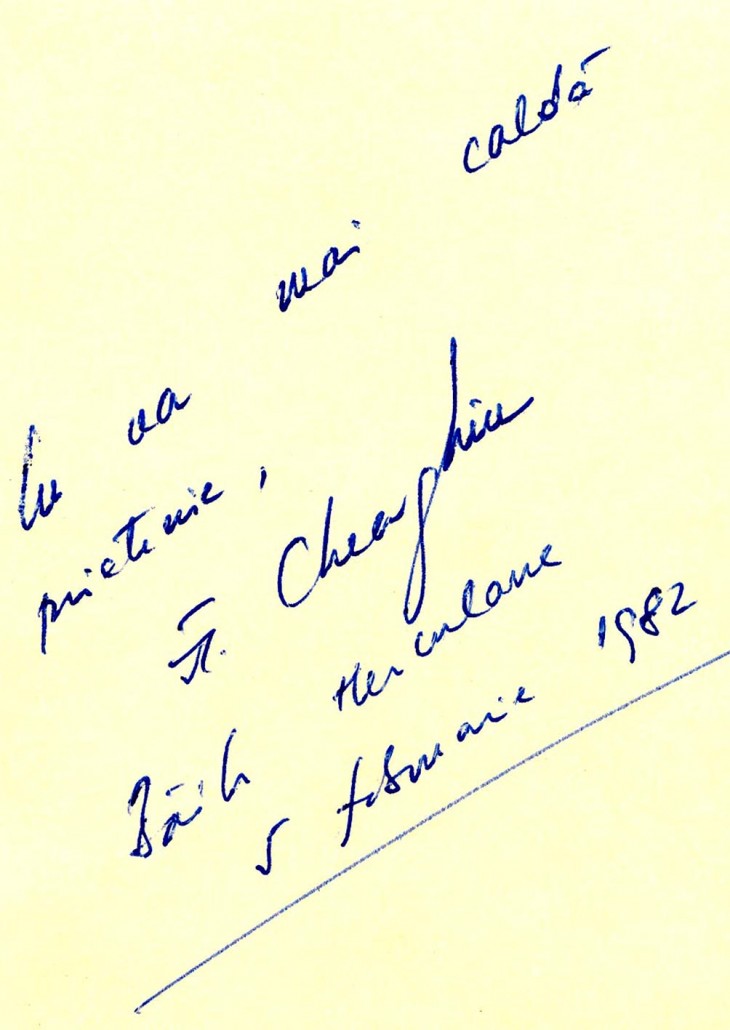 cu cea mai caldă
prietenie,
Gheorghiu
Băile Herculane
5 februarie 1982